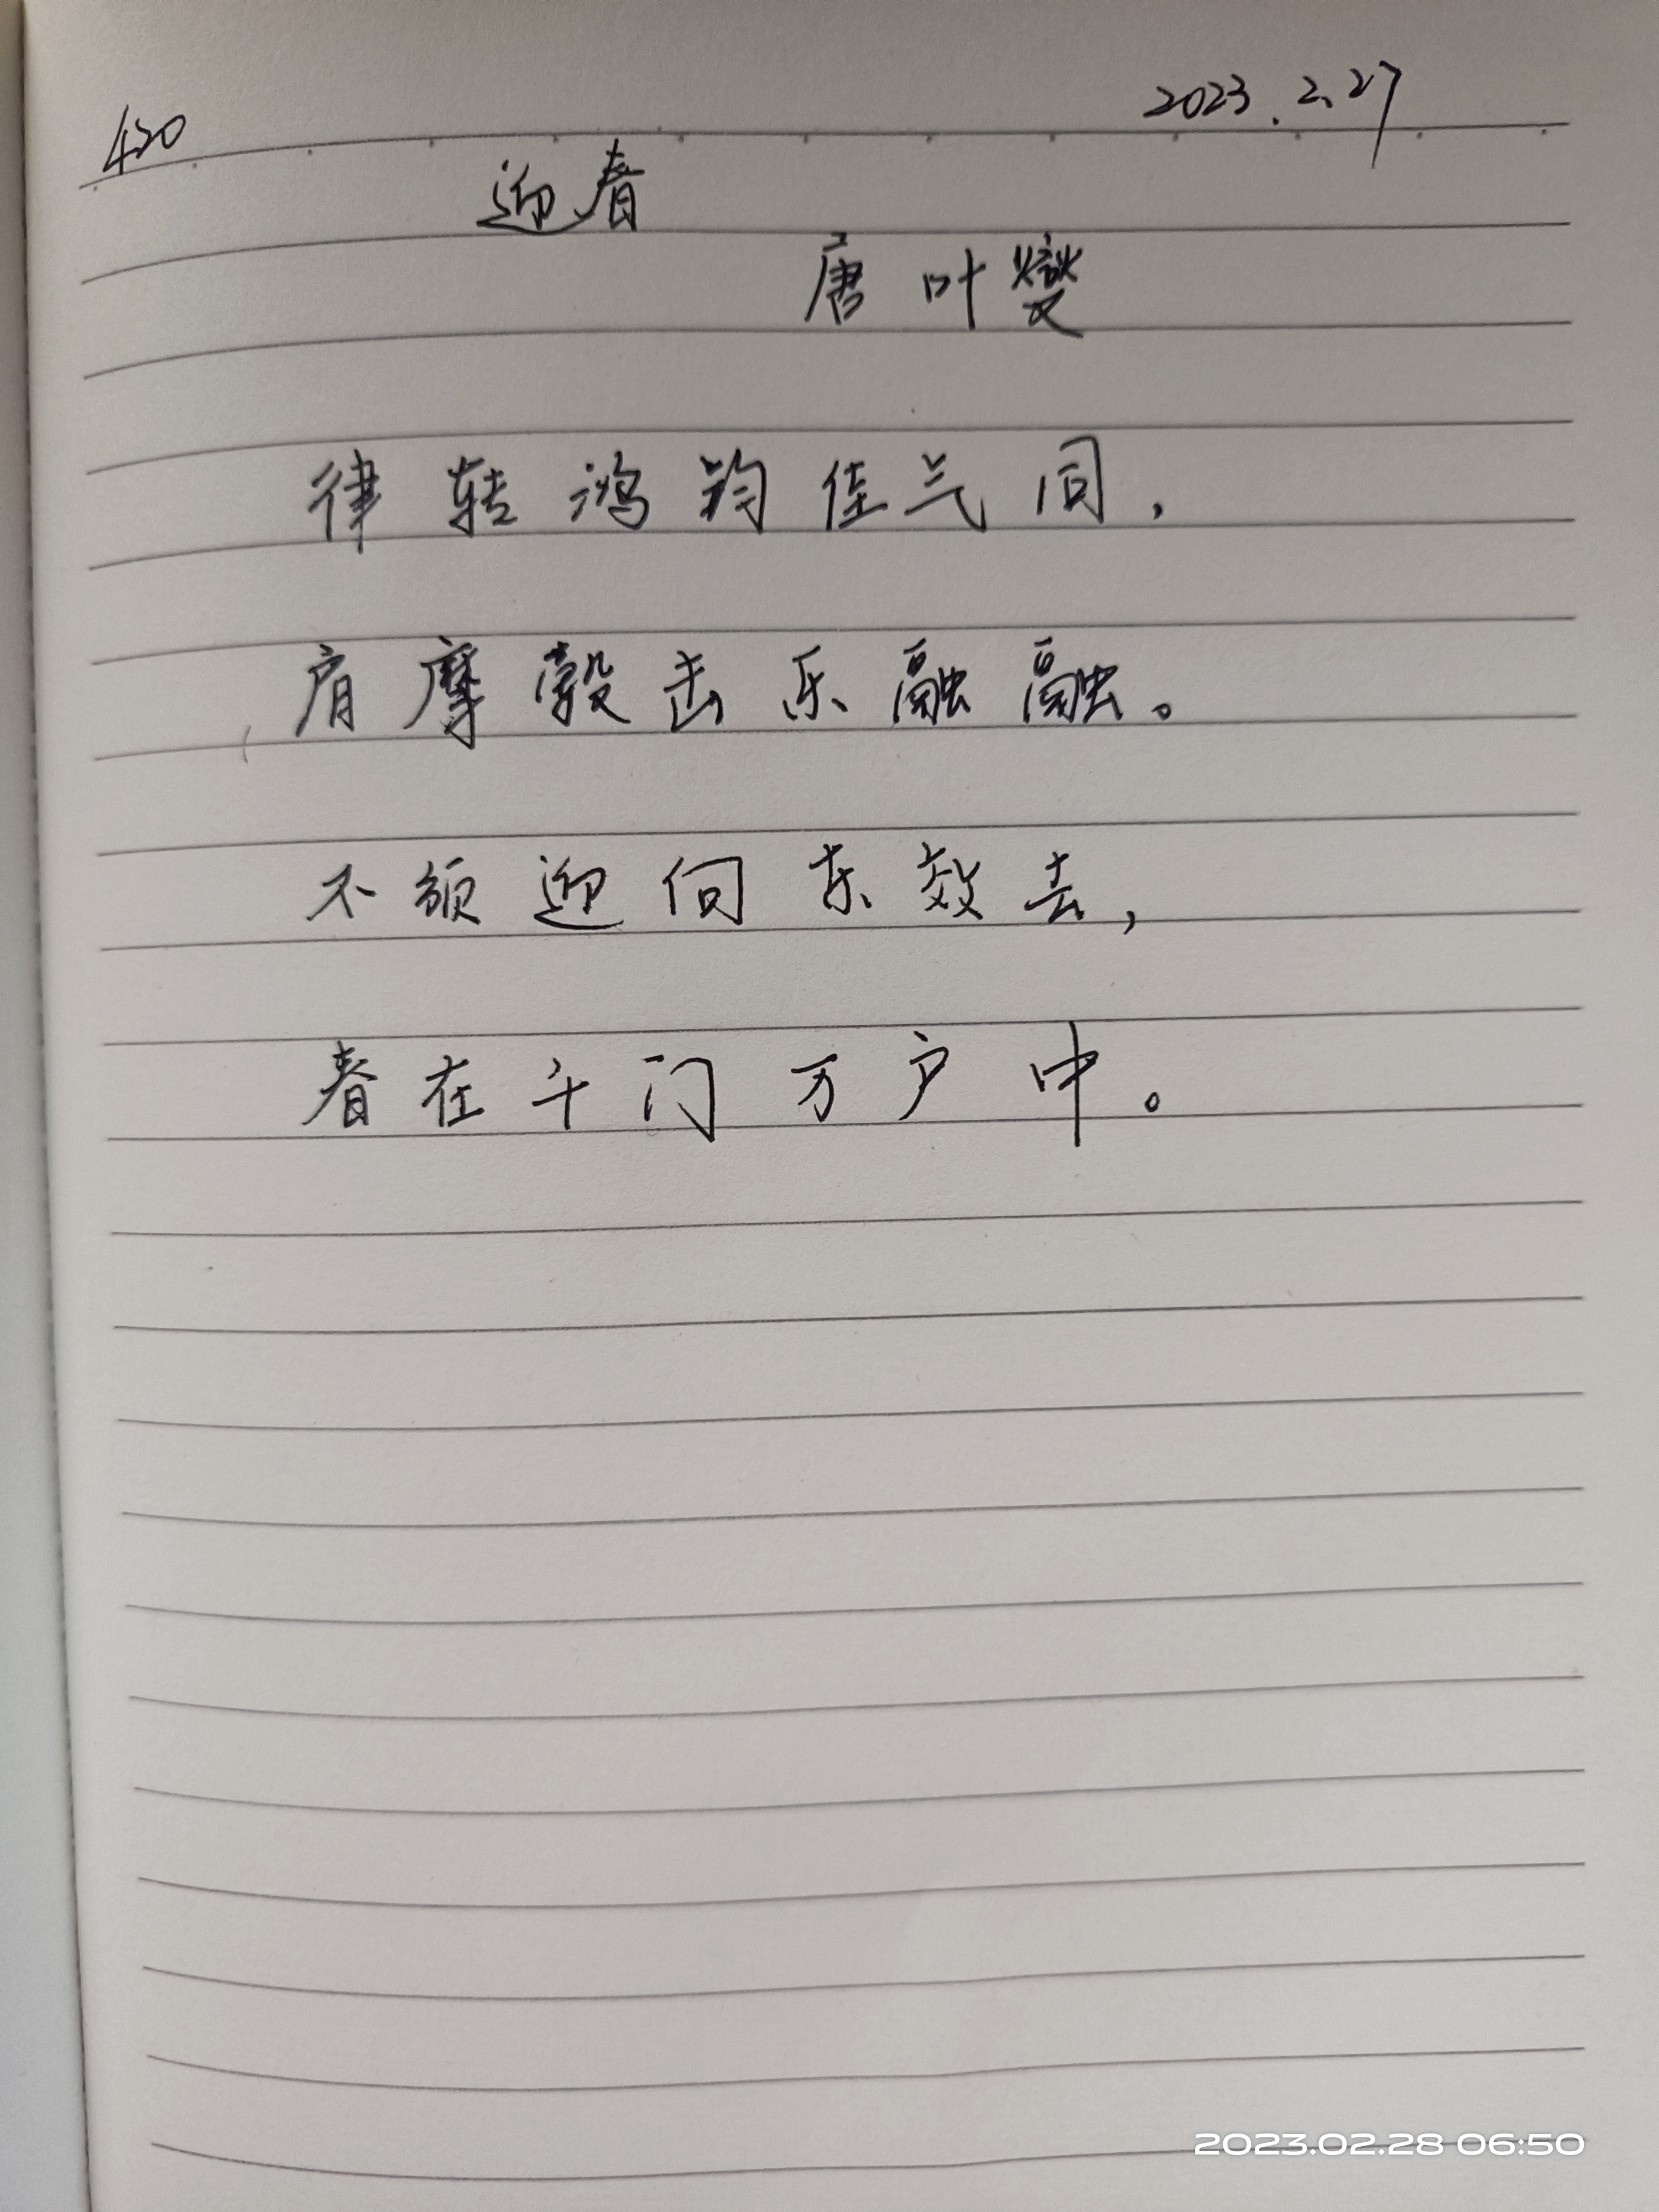 420
2023.2.27
迎春
唐 叶燮
律转鸿钧佳气同,
肩摩毂击乐融融。
不须迎向东效去,
春在千门万户中。
2023.02.28 06:50